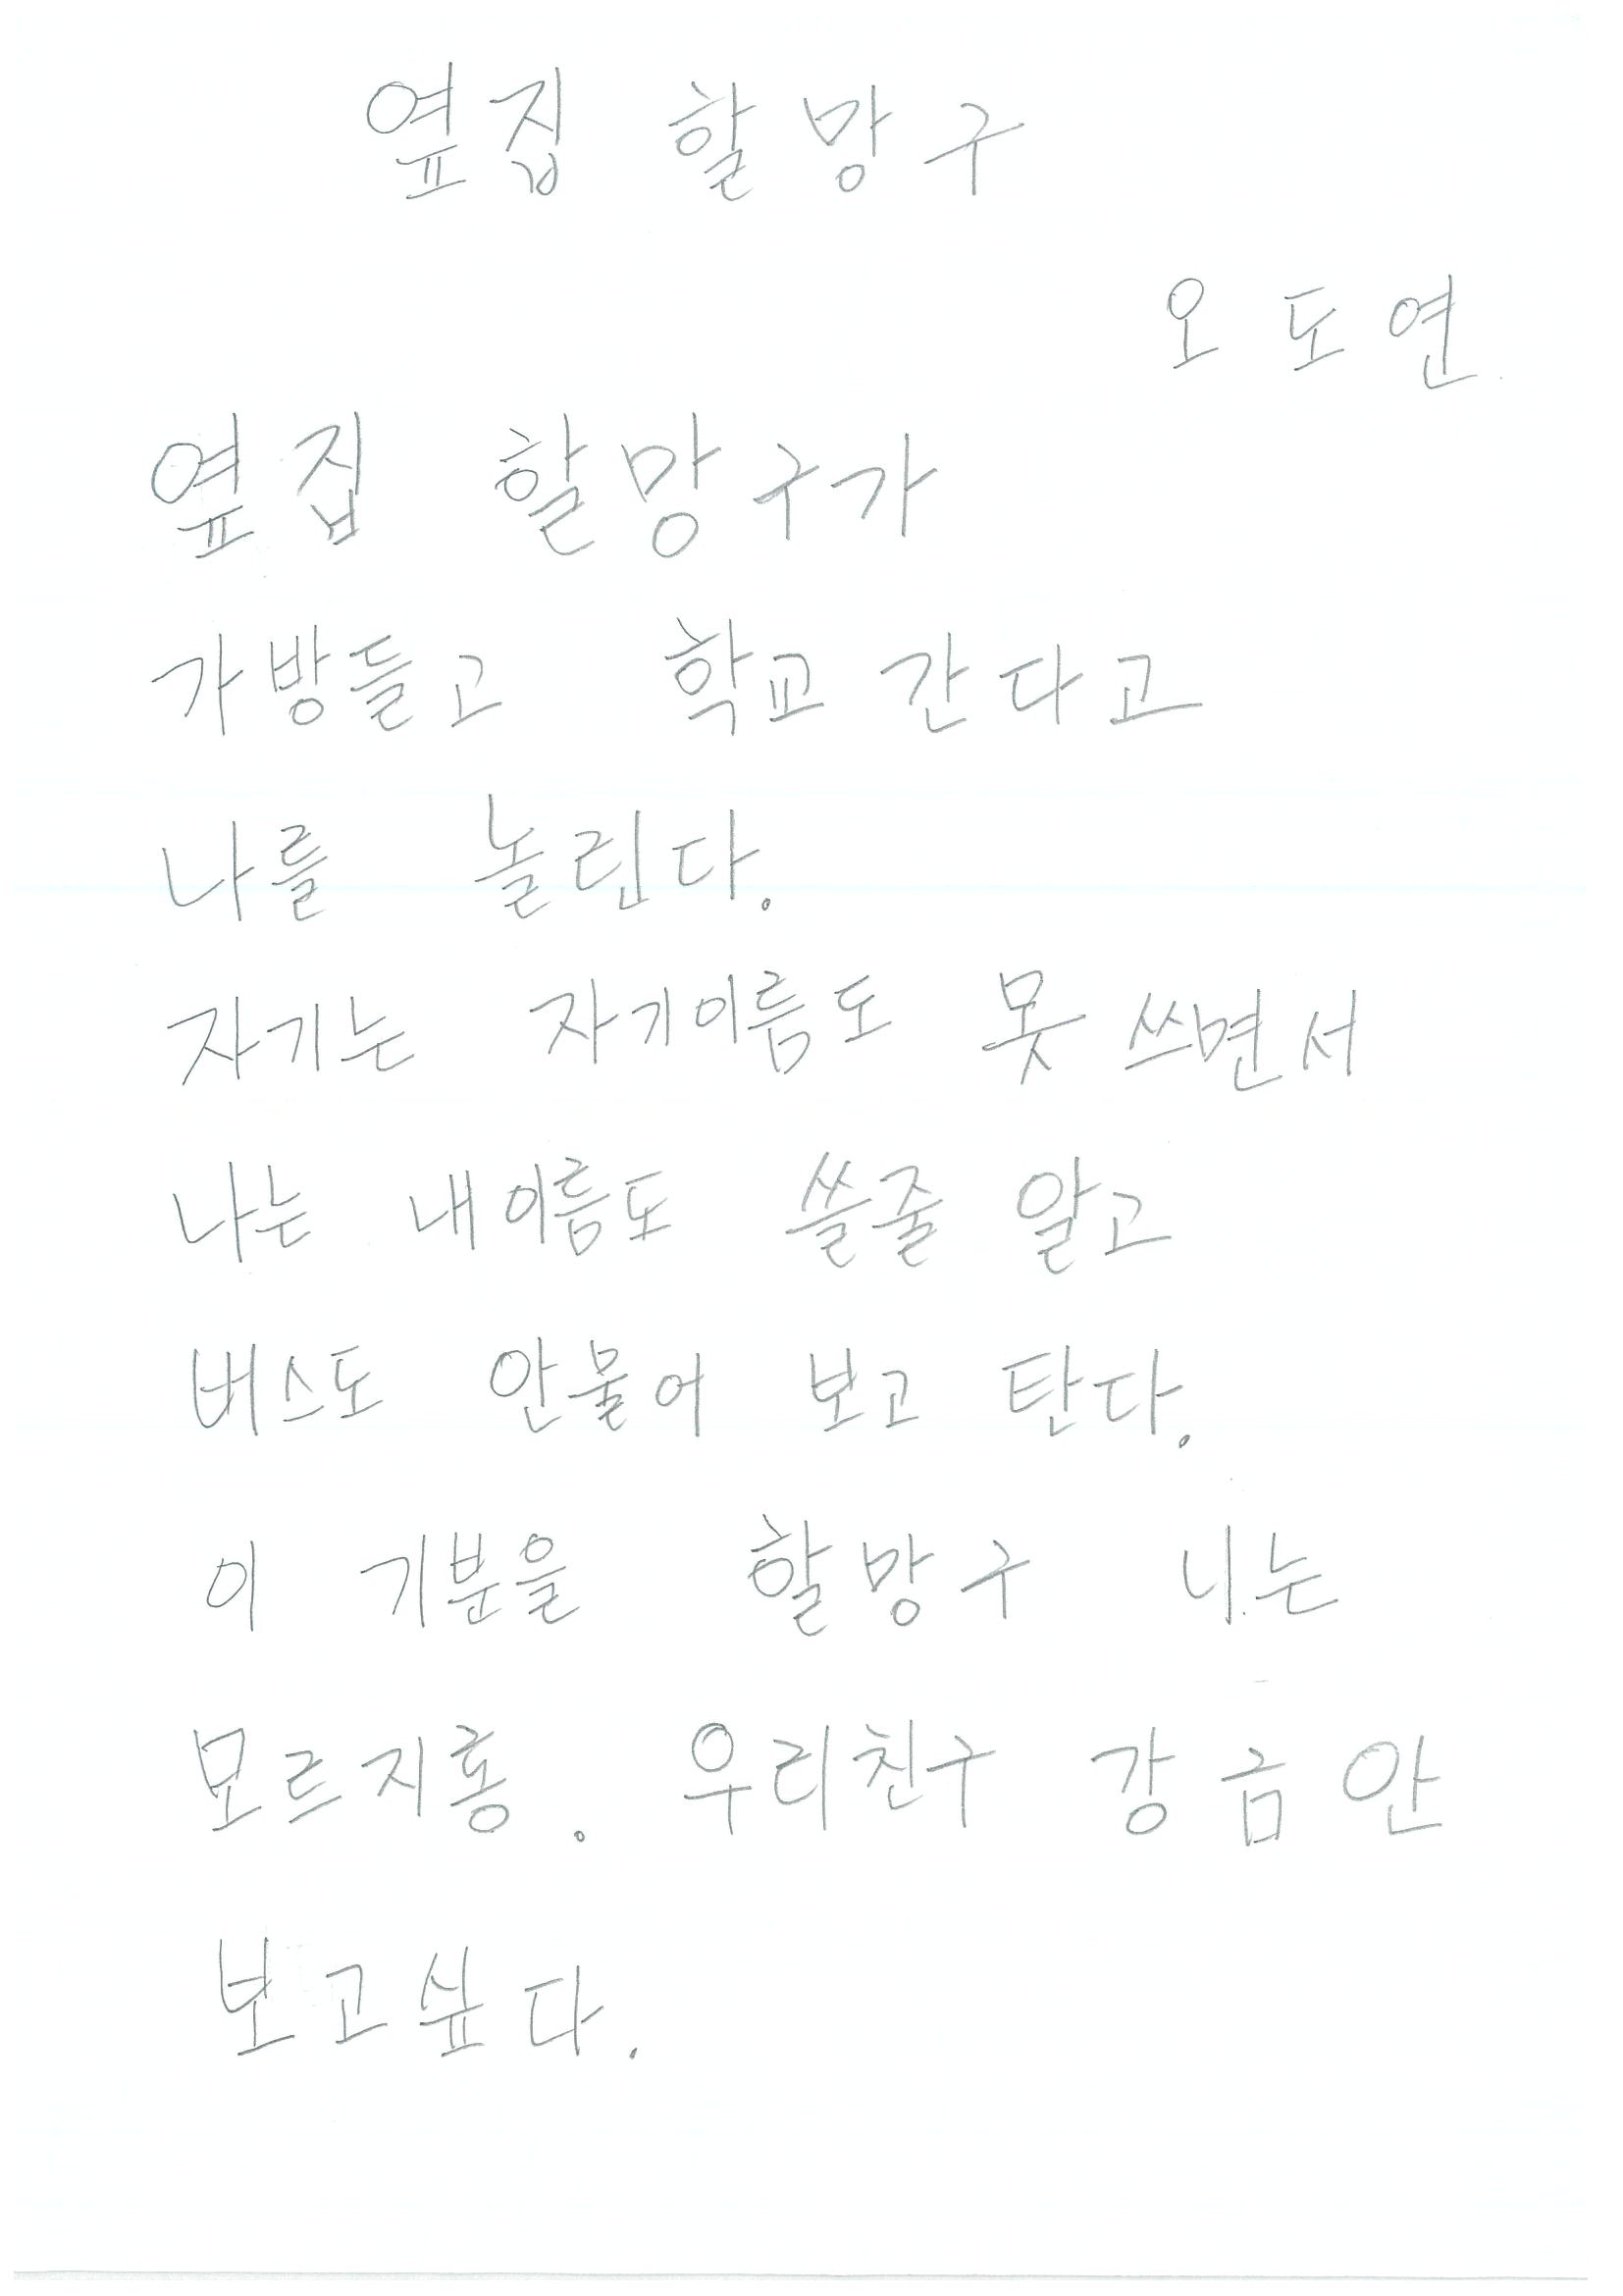 옆집 할망구
오도연
옆집 할망구가
가방들고 학교 간다고
나를 놀린다.
자기는 자기이름도 못 쓰면서
나는 내이름도 쓸줄 알고
버스도 안물어 보고 탄다.
이 기분을 할망구 니는
모르지롱. 우리친구 강금안
보고싶다.